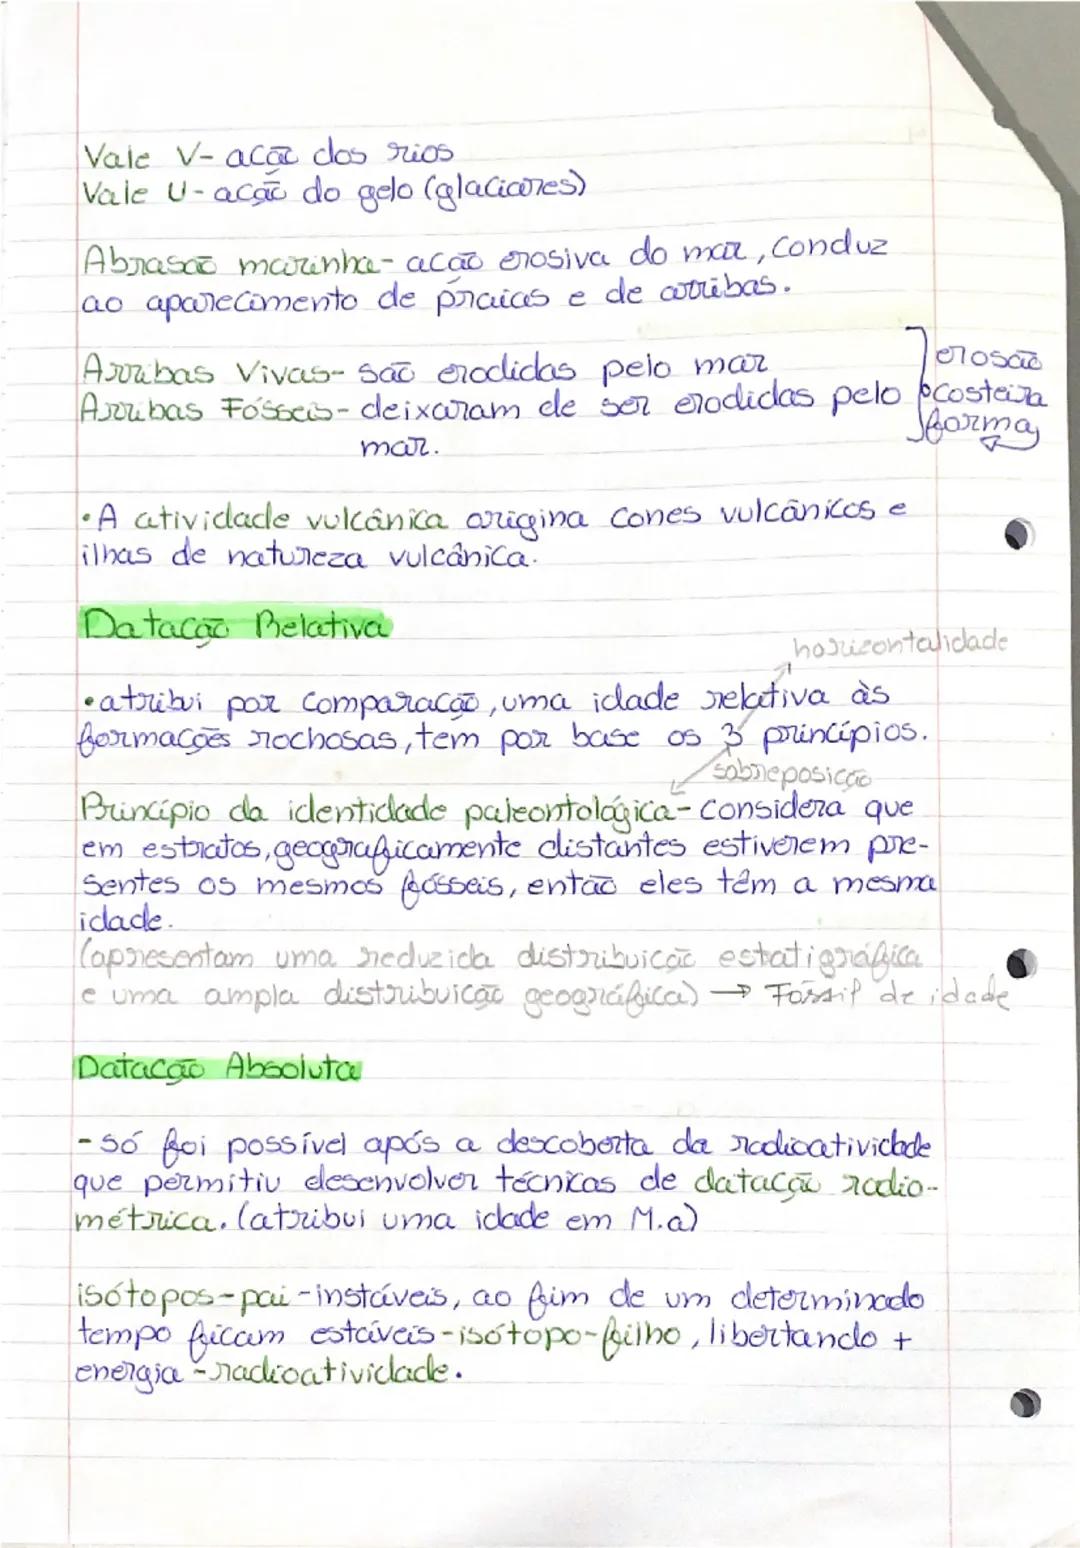 Vale V- ação dos rios
Vale U- ação do gelo (glaciares)
Abrasão marinha- ação erosiva do mar, conduz
ao aparecimento de praias e de arribas.
Arribas Vivas- são erodidas pelo mar
Arribas Fósseis- deixaram de ser erodidas pelo
mar.
erosão
costeira
forma
•A atividade vulcânica origina cones vulcânicos e
ilhas de natureza vulcânica.
Datação Relativa
horizontalidade
•atribui por comparação, uma idade relativa às
formações rochosas, tem por base os 3 princípios.
sobreposição
Princípio da identidade paleontológica- considera que
em estratos, geograficamente distantes estiverem pre-
sentes os mesmos fósseis, então eles têm a mesma
idade.
(apresentam uma reduzida distribuição estatigráfica
e uma ampla distribuição geográfica) → Fóssil de idade
Datação Absoluta
- só foi possível após a descoberta da radioatividade
que permitiu desenvolver técnicas de datação radio-
métrica. (atribui uma idade em M.a)
isótopos-pai -instáveis, ao fim de um determinado
tempo ficam estáveis -isótopo-filho, libertando +
energia -radioatividade.